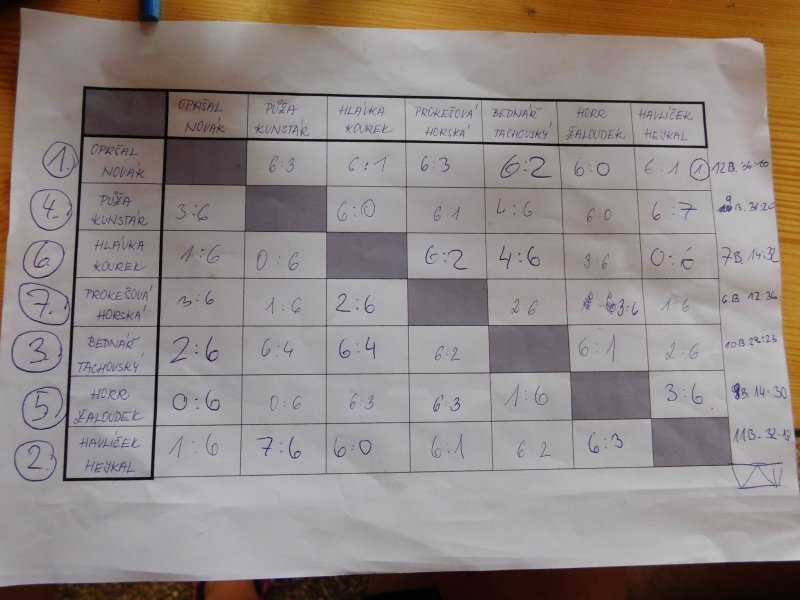 OPRŠAL NOVÁK PŮŽA KUNSTÁR HLÁVKA KOUREK PROKEŠOVÁ HORSKÁ BEDNÁŘ TACHOVSKÝ HORR ŽALOUDEK HAVLÍČEK HEJKAL
1. OPRŠAL NOVÁK 6:3 6:1 6:3 6:2 6:0 6:1 1. 12B. 36:10
4. PŮŽA KUNSTÁR 3:6 6:0 6:1 4:6 6:0 6:7 9B. 31:20
6. HLÁVKA KOUREK 1:6 0:6 6:2 4:6 3:6 0:6 7B. 14:32
7. PROKEŠOVÁ HORSKÁ 3:6 1:6 2:6 2:6 3:6 1:6 6.B 12:36
3. BEDNÁŘ TACHOVSKÝ 2:6 6:4 6:4 6:2 6:1 2:6 10B 28:23
5. HORR ŽALOUDEK 0:6 0:6 6:3 6:3 1:6 3:6 B. 14:30
2. HAVLÍČEK HEJKAL 1:6 7:6 6:0 6:1 6:2 6:3 11B. 32:18